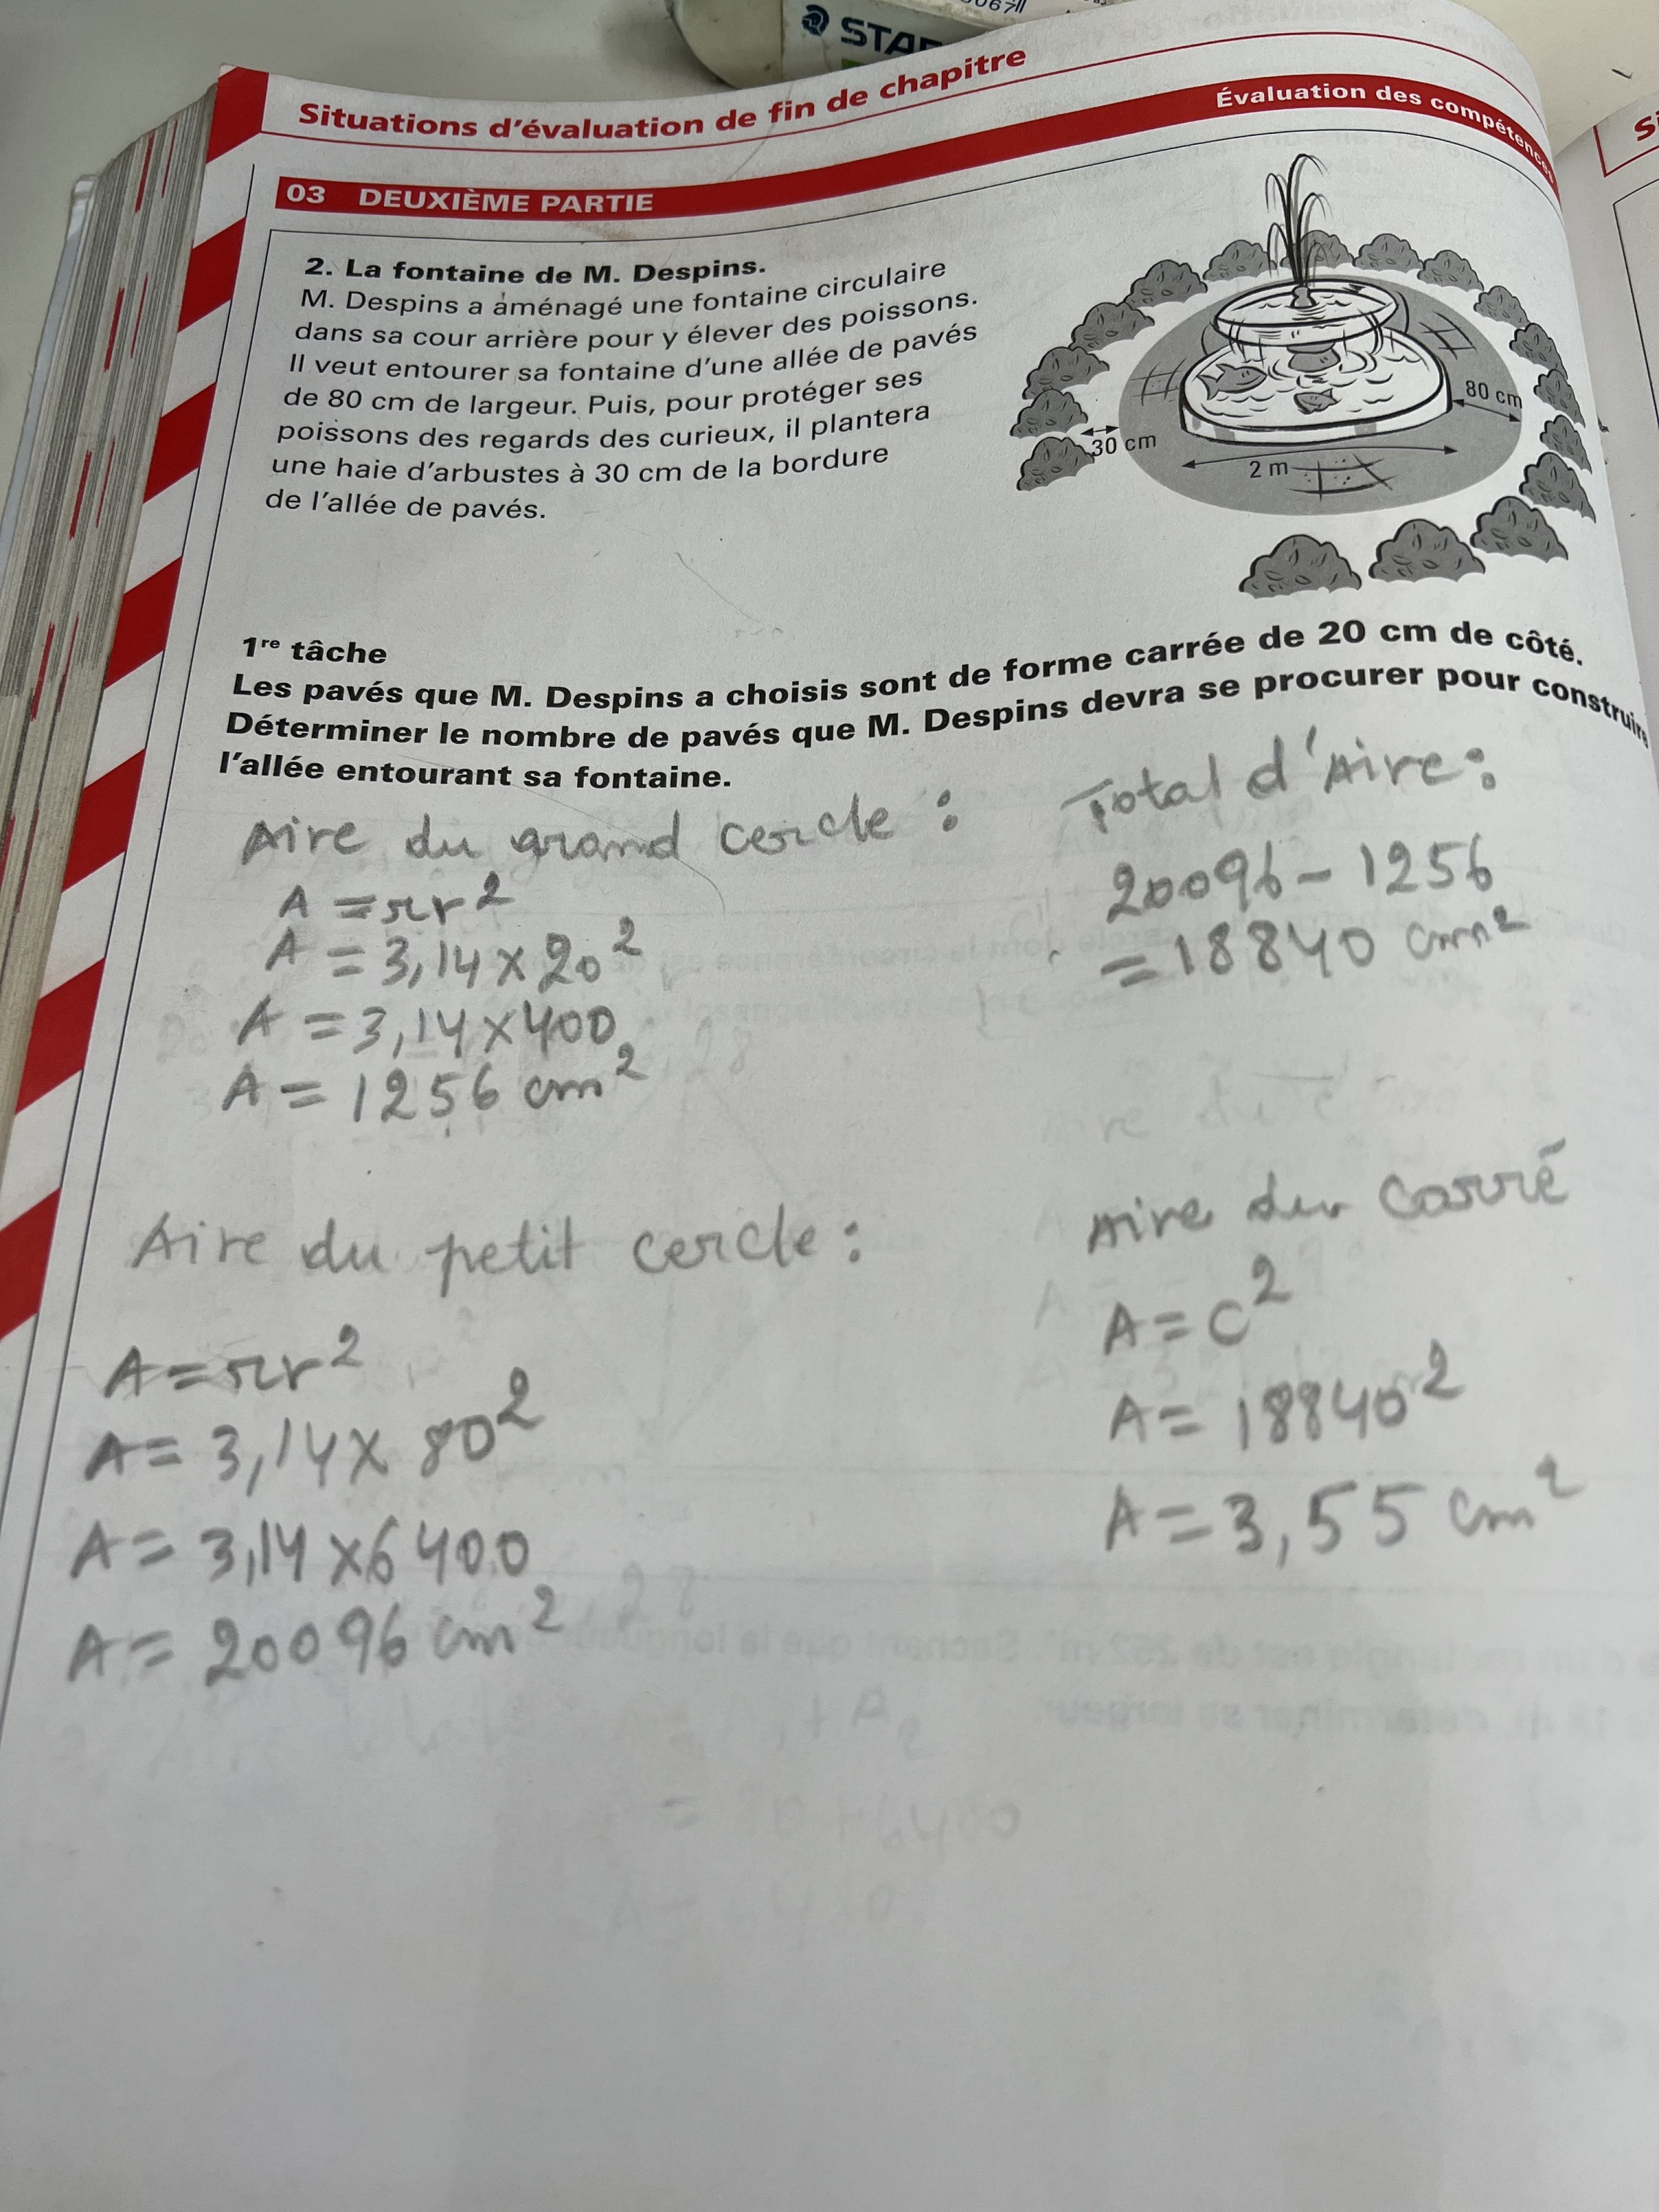 STA
Situations d'évaluation de fin de chapitre
Évaluation des compétences
03 DEUXIÈME PARTIE
2. La fontaine de M. Despins.
M. Despins a aménagé une fontaine circulaire
dans sa cour arrière pour y élever des poissons.
Il veut entourer sa fontaine d'une allée de pavés
de 80 cm de largeur. Puis, pour protéger ses
poissons des regards des curieux, il plantera
une haie d'arbustes à 30 cm de la bordure
de l'allée de pavés.
80 cm
30 cm
2 m
1re tâche
Les pavés que M. Despins a choisis sont de forme carrée de 20 cm de côté.
Déterminer le nombre de pavés que M. Despins devra se procurer pour construire
l'allée entourant sa fontaine.
Aire du grand cercle :
A = πr²
A = 3,14 × 20²
A = 3,14 × 400
A = 1256 cm²
Aire du petit cercle :
A = πr²
A = 3,14 × 80²
A = 3,14 × 6400
A = 20096 cm²
Total d'Aire :
20096 - 1256
= 18840 cm²
Aire du carré
A = c²
A = 18840²
A = 3,55 cm²